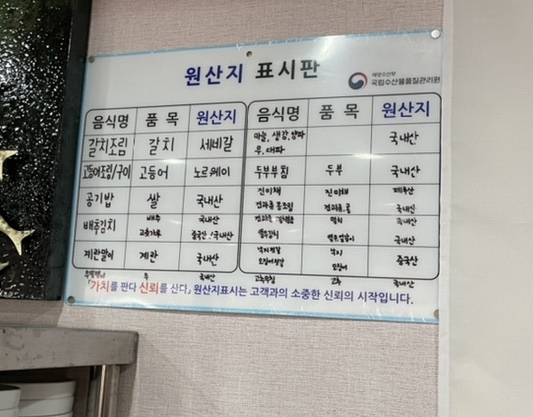 원산지 표시판
해양수산부
국립수산물품질관리원
음식명 품 목 원산지
갈치조림 갈치 세네갈
고등어조림/구이 고등어 노르웨이
공기밥 쌀 국내산
배추김치 배추 국내산
고춧가루 중국산/국내산
계란말이 계란 국내산
무 국내산
음식명 품 목 원산지
마늘, 생강, 양파 국내산
무, 대파
두부부침 두부 국내산
진미채 진미채
국내산
멸치 국내산
국내산
낙지젓갈 낙지 중국산
오징어
고추 국내산
「가치를 판다 신뢰를 산다」 원산지표시는 고객과의 소중한 신뢰의 시작입니다.